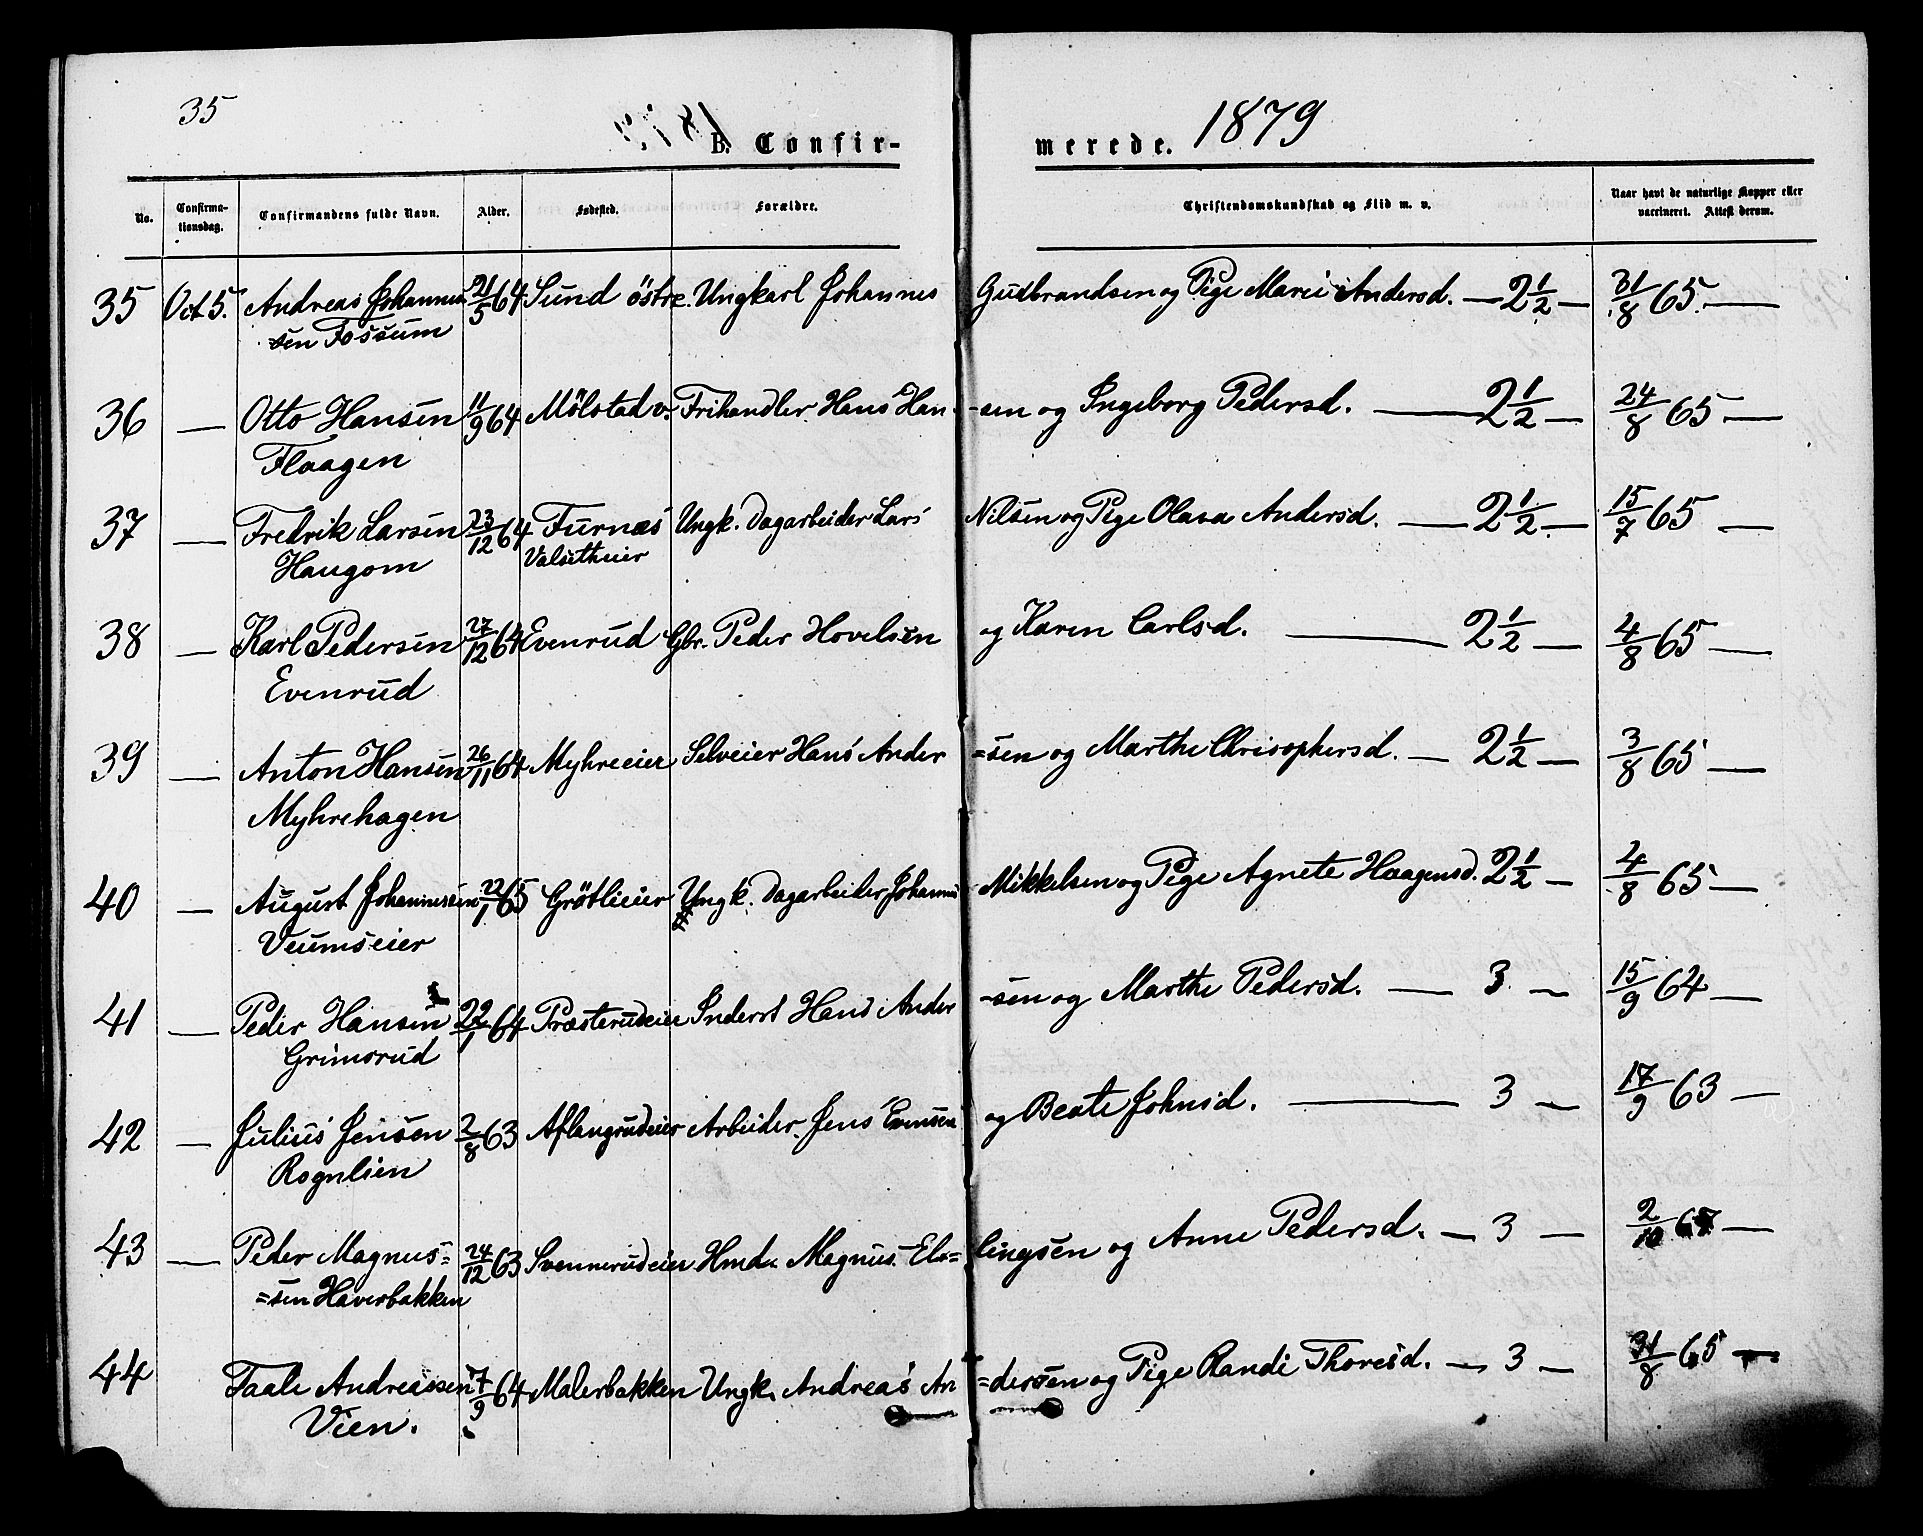 35
B. Confir-
merede. 1879
No. Confirma-tionsdag. Confirmandens fulde Navn. Alder. Fødested. Forældre. Christendomskundskab og Flid m. v. Naar havt de naturlige Kopper eller vaccineret. Attest derom.
35 Oct 5. Andreas Johannes 21/5 64 Sund östre. Ungkarl Johannes Gudbrandsen og Pige Marie Andersd. — 2 1/2 — 31/8 65. —
sen Fossum
36 — Otto Hansen 11/9 64 Mölstad v. Frihandler Hans Han- -sen og Ingeborg Pedersd. — 2 1/2 — 24/8 65 —
Flaagen
37 — Fredrik Larsen 23/12 64 Furnæs Ungk. Dagarbeider Lars Nilsen og Pige Olava Andersd. — 2 1/2 — 15/7 65 —
Haugom Valsetheier
38 — Karl Pedersen 27/12 64 Evenrud Gbr. Peder Hovelsen og Karen Carlsd. — 2 1/2 — 4/8 65 —
Evenrud
39 — Anton Hansen 26/11 64 Myhreeier Selveier Hans Ander =sen og Marthe Chrisophersd. — 2 1/2 — 3/8 65 —
Myhrehagen
40 — August Johannesen 22/1 65 Grötlieier Ungk. Dagarbeider Johannes Mikkelsen og Pige Agnete Haagensd. 2 1/2 — 4/8 65 —
Veumseier
41 — Peder Hansen 22/1 64 Præsterudeier Inderst Hans Ander -sen og Marthe Pedersd. — 3 — 15/9 64 —
Grimsrud
42 — Julius Jensen 2/8 63 Aflangrudeier Arbeider Jens Evensen og Beate Johnsd. — 3 — 17/9 63 —
Rognlien
43 — Peder Magnus= 24/12 63 Svennerudeier Hmd. Magnus El= lingsen og Anne Pedersd. — 3 — 2/10 67 —
=sen Haverbakken
44 Taale Andreassen 7/9 64 Malerbakken Ungk. Andreas An =dersen og Pige Randi Thoresd. — 3 — 31/8 65 —
Vien.